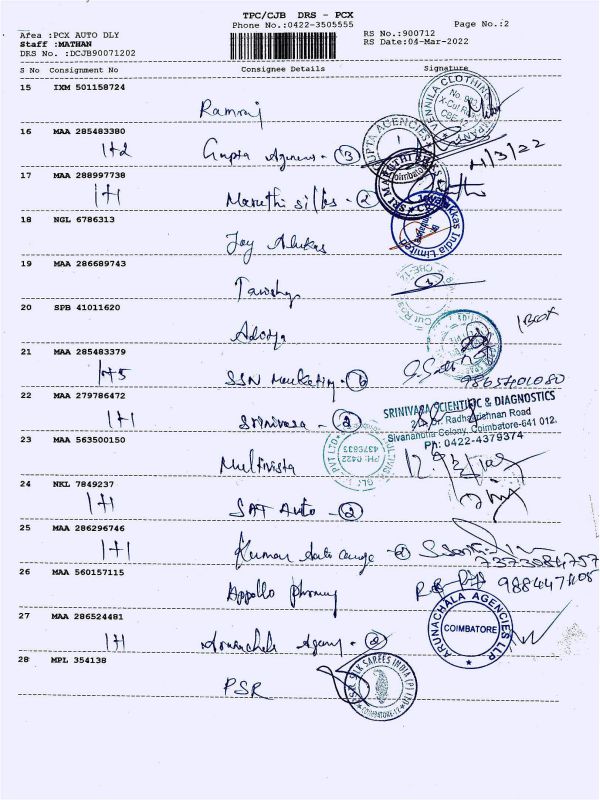 TPC/CJB DRS - PCX
Phone No.:0422-3505555
Page No.:2
Area :PCX AUTO DLY
Staff :MATHAN
DRS No. :DCJB90071202
RS No.:900712
RS Date:04-Mar-2022
S No Consignment No Consignee Details Signature
15 IXM 501158724
Ramraj
VENNILA CLOTHING COMPANY
X-Cut Road
16 MAA 285483380
1+2 Gupta Agencies - (3)
GUPTA AGENCIES
4/3/22
17 MAA 288997738
1+1 Maruthi silks - (2)
SRI MARUTHI SILKS
Coimbatore
18 NGL 6786313
Joy Alukas
Joyalukkas India Limited
19 MAA 286689743
20 SPB 41011620
1 Box
21 MAA 285483379
1+5 SSN Marketing - (6)
9865401080
22 MAA 279786472
1+1 Srinivasa - (2)
SRINIVASA SCIENTIFIC & DIAGNOSTICS
Dr. Radhakrishnan Road
Sivanandha Colony, Coimbatore-641 012.
Ph: 0422-4379374
23 MAA 563500150
Multivista
24 NKL 7849237
1+1 SAT Auto - (2)
25 MAA 286296746
1+1 Kumar
7373084757
26 MAA 560157115
Appollo Pharmacy
27 MAA 286524481
1+1 Arunachala Agency - (2)
ARUNACHALA AGENCIES LLP
COIMBATORE
28 MPL 354138
PSR
SILK SAREES INDIA (P) LTD
COIMBATORE-12